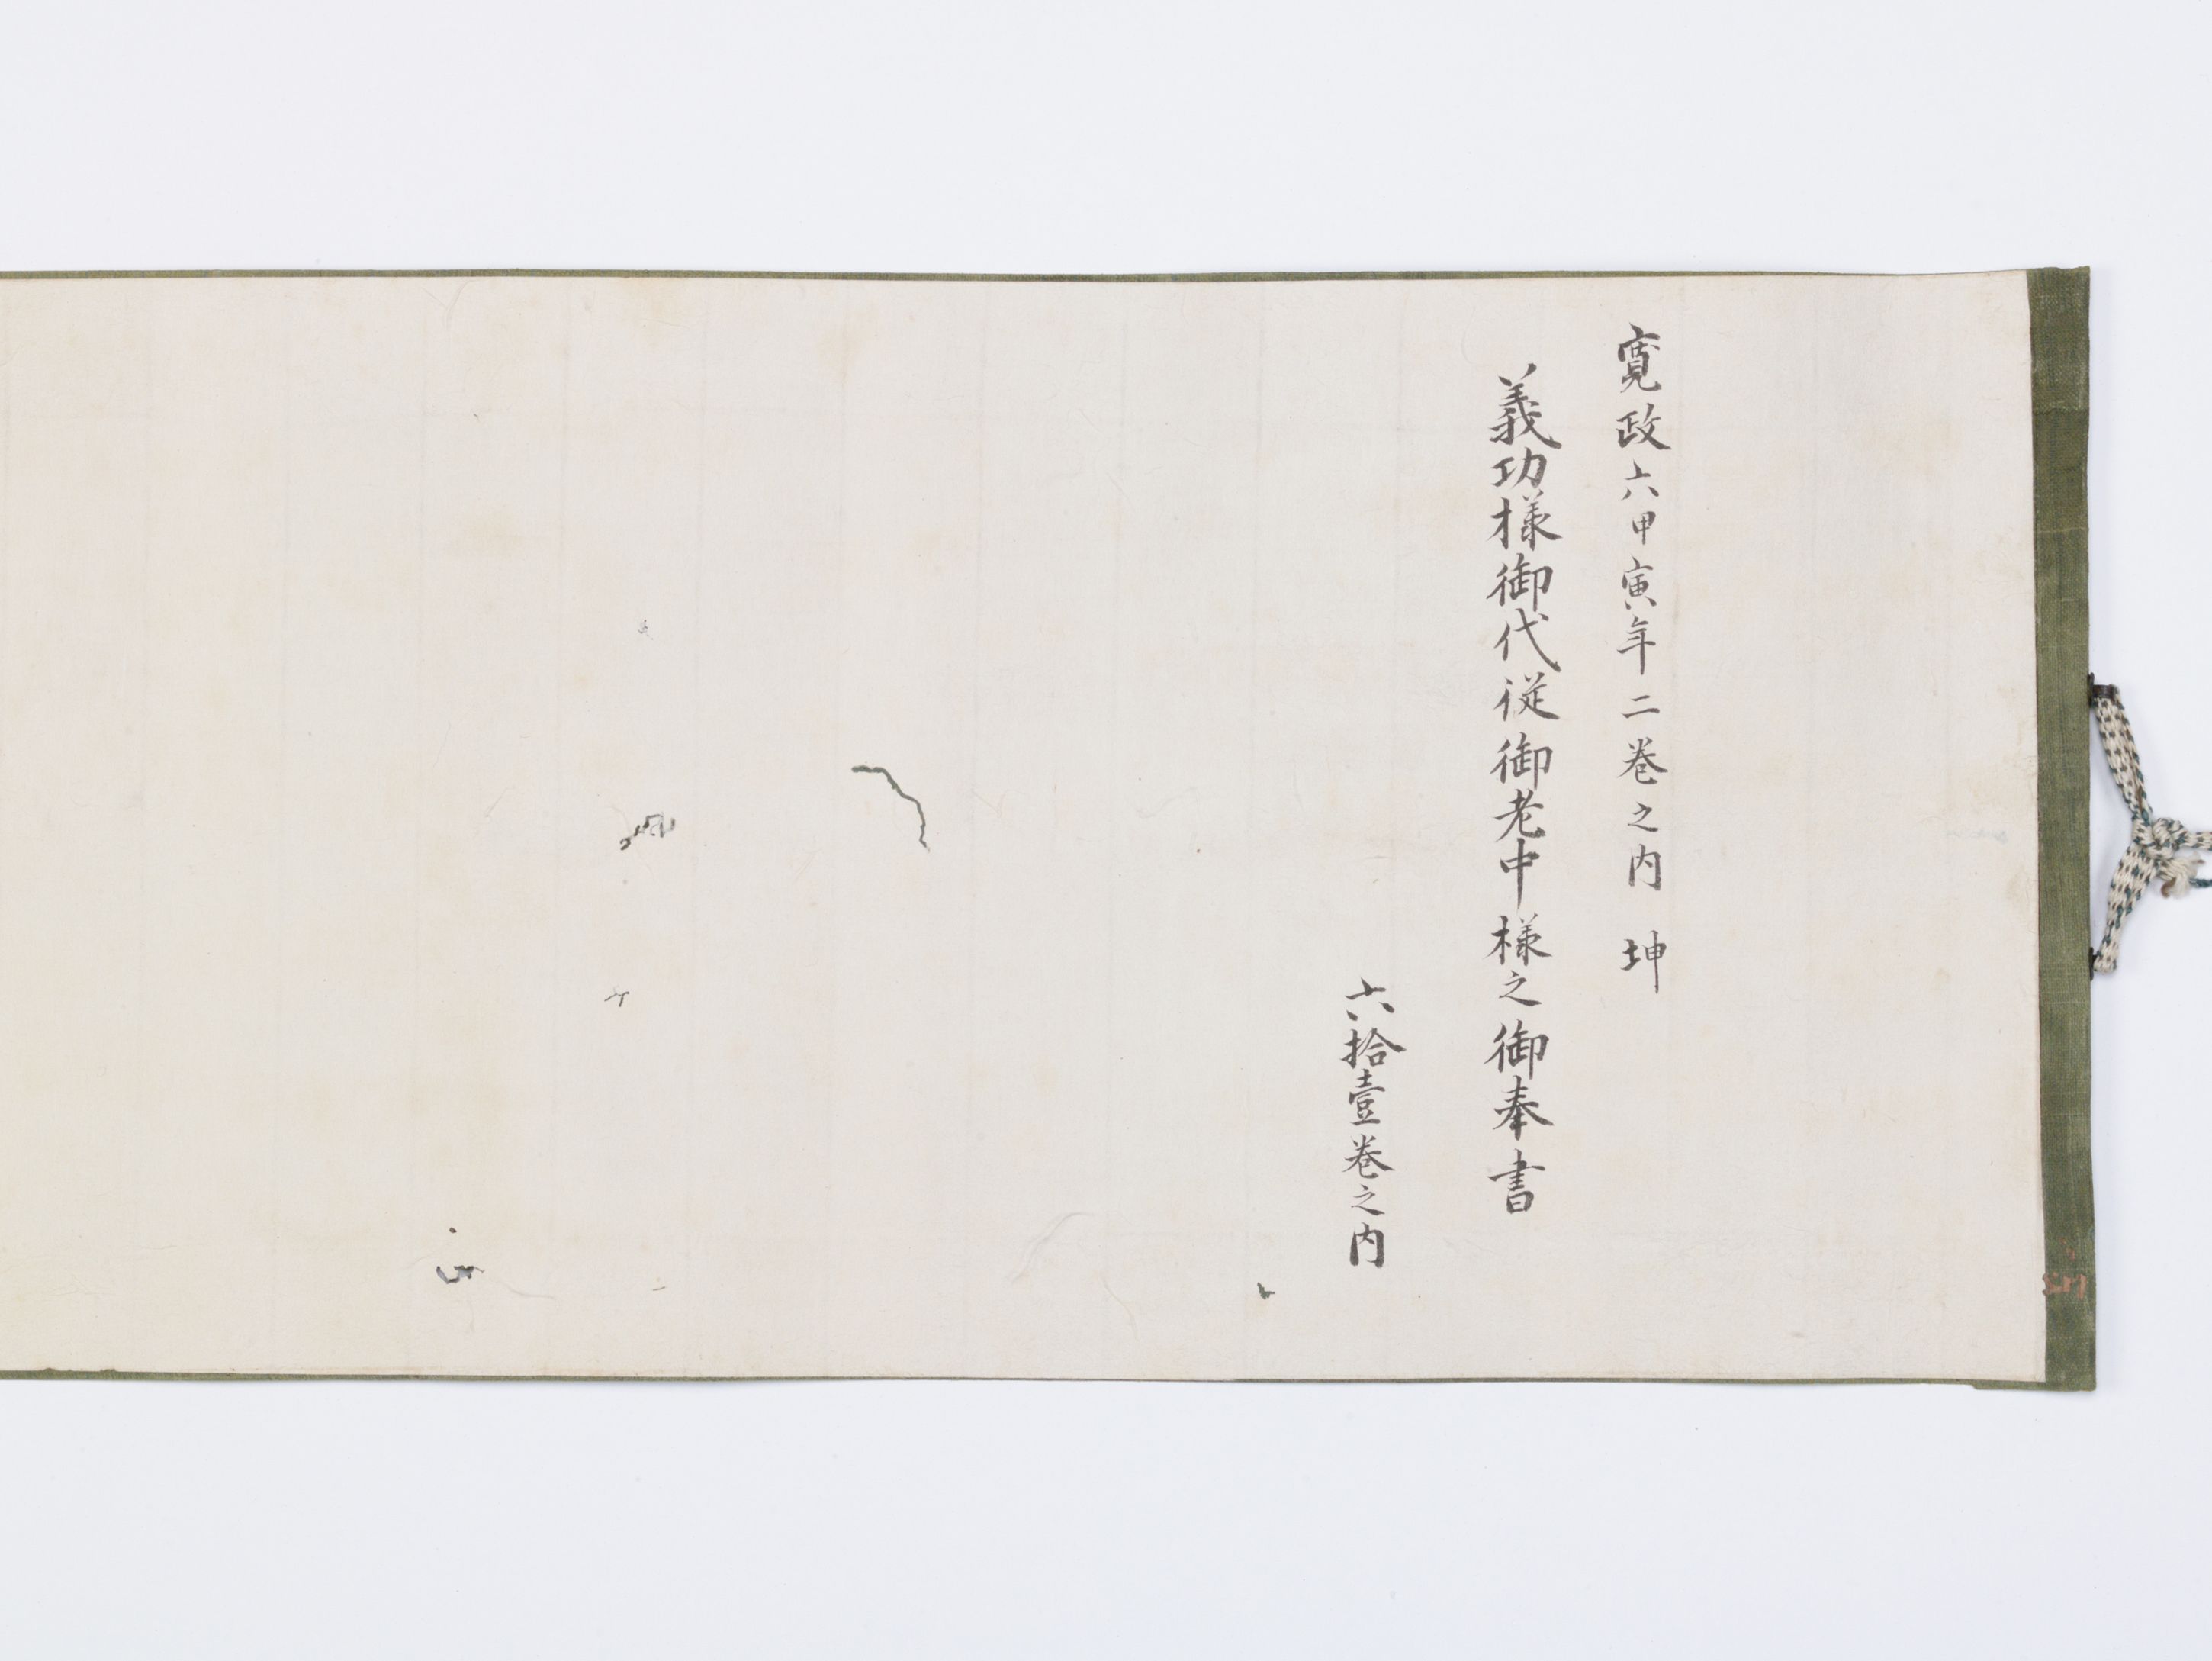 寛政六甲寅年二巻之内　坤
義功様御代従御老中様之御奉書
六拾壹巻之内